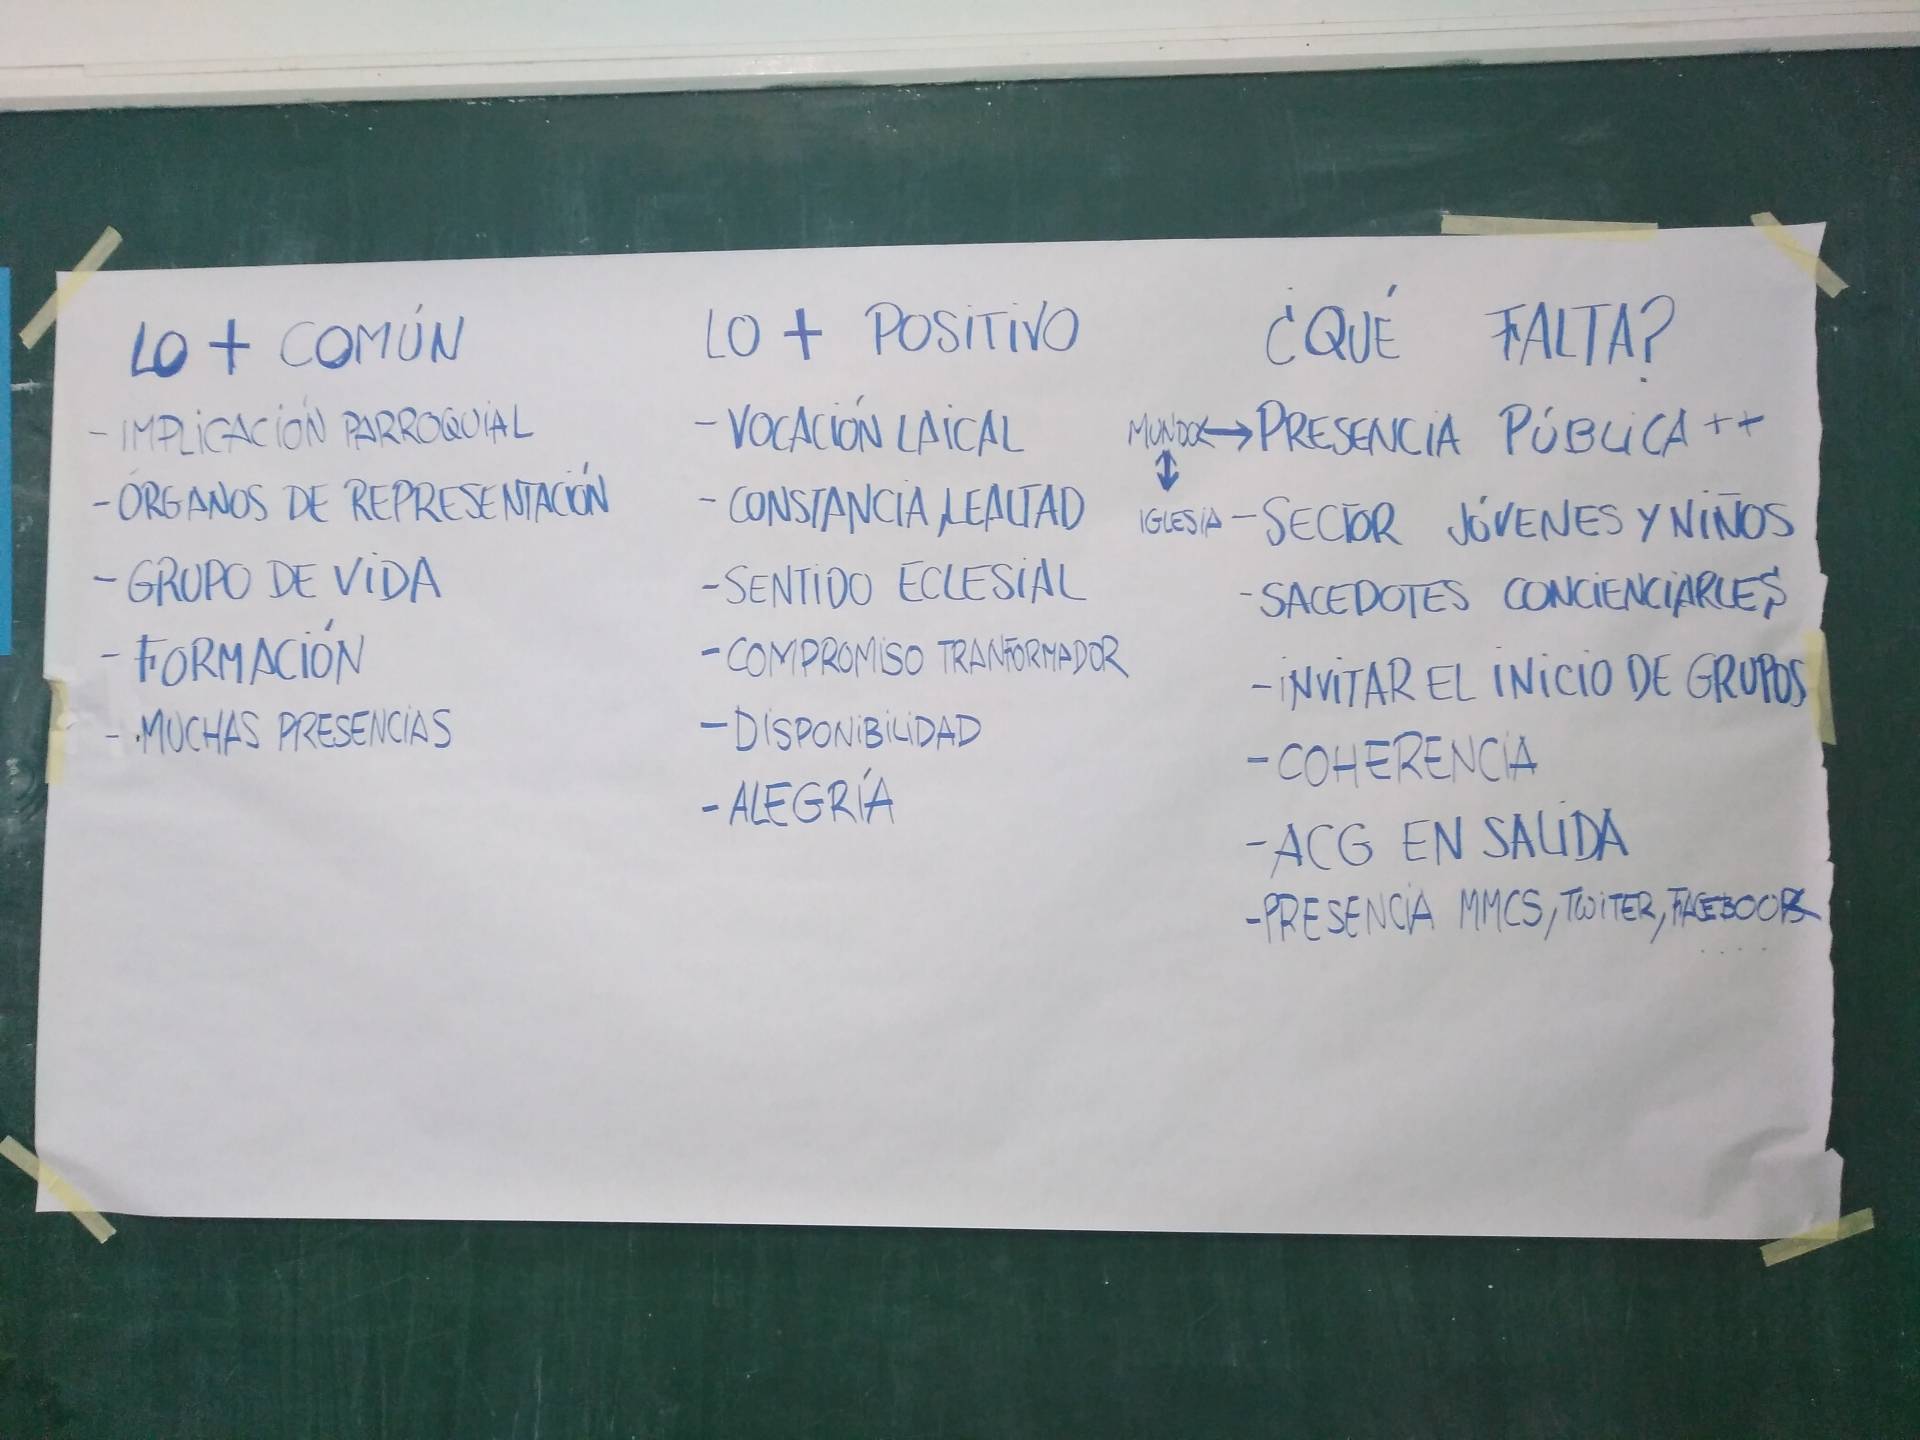 LO + COMÚN
- IMPLICACIÓN PARROQUIAL
- ÓRGANOS DE REPRESENTACIÓN
- GRUPO DE VIDA
- FORMACIÓN
- MUCHAS PRESENCIAS
LO + POSITIVO
- VOCACIÓN LAICAL
- CONSTANCIA, LEALTAD
- SENTIDO ECLESIAL
- COMPROMISO TRANFORMADOR
- DISPONIBILIDAD
- ALEGRÍA
¿QUÉ FALTA?
MUNDO ↔ PRESENCIA PÚBLICA ++
↕
IGLESIA - SECTOR JÓVENES Y NIÑOS
- SACEDOTES CONCIENCIARLES
- INVITAR EL INICIO DE GRUPOS
- COHERENCIA
- ACG EN SALIDA
- PRESENCIA MMCS, TWITER, FACEBOOK
....